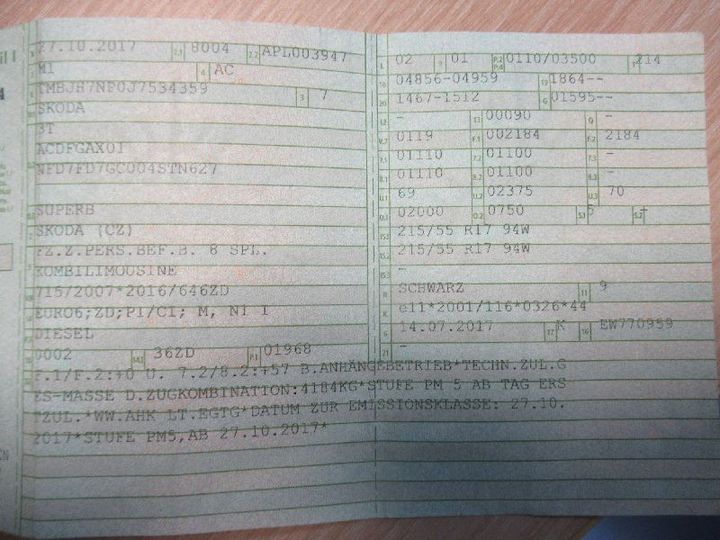 27.10.2017 2.1 8004 2.2 APL003947
M1 4 AC
TMBJH7NP0J7534359 3 7
SKODA
3T
ACDFGAX01
NFD7FD7GC004STN627
SUPERB
SKODA (CZ)
FZ.Z.PERS.BEF.B. 8 SPL.
KOMBILIMOUSINE
715/2007*2016/646ZD
EURO6;ZD;PI/CI; M, N1 I
DIESEL
0002 14.1 36ZD P.1 01968
L 02 9 01 P.2 P.4 0110/03500 T 214
18 04856-04959 19 1864--
20 1467-1512 G 01595--
12 - 13 00090 Q -
V.7 0119 F.1 002184 F.2 2184
7.1 01110 7.2 01100 7.3 -
8.1 01110 8.2 01100 8.3 -
U.1 69 U.2 02375 U.3 70
O.1 02000 O.2 0750 S.1 5 S.2 -
15.1 215/55 R17 94W
15.2 215/55 R17 94W
15.3 -
R SCHWARZ 11 9
K e11*2001/116*0326*44
6 14.07.2017 17 K 16 EW770959
21 -
F.1/F.2:+0 U. 7.2/8.2:+57 B.ANHÄNGEBETRIEB*TECHN.ZUL.G
ES-MASSE D.ZUGKOMBINATION:4184KG*STUFE PM 5 AB TAG ERS
TZUL.*WW.AHK LT.EGTG*DATUM ZUR EMISSIONSKLASSE: 27.10.
2017*STUFE PM5,AB 27.10.2017*